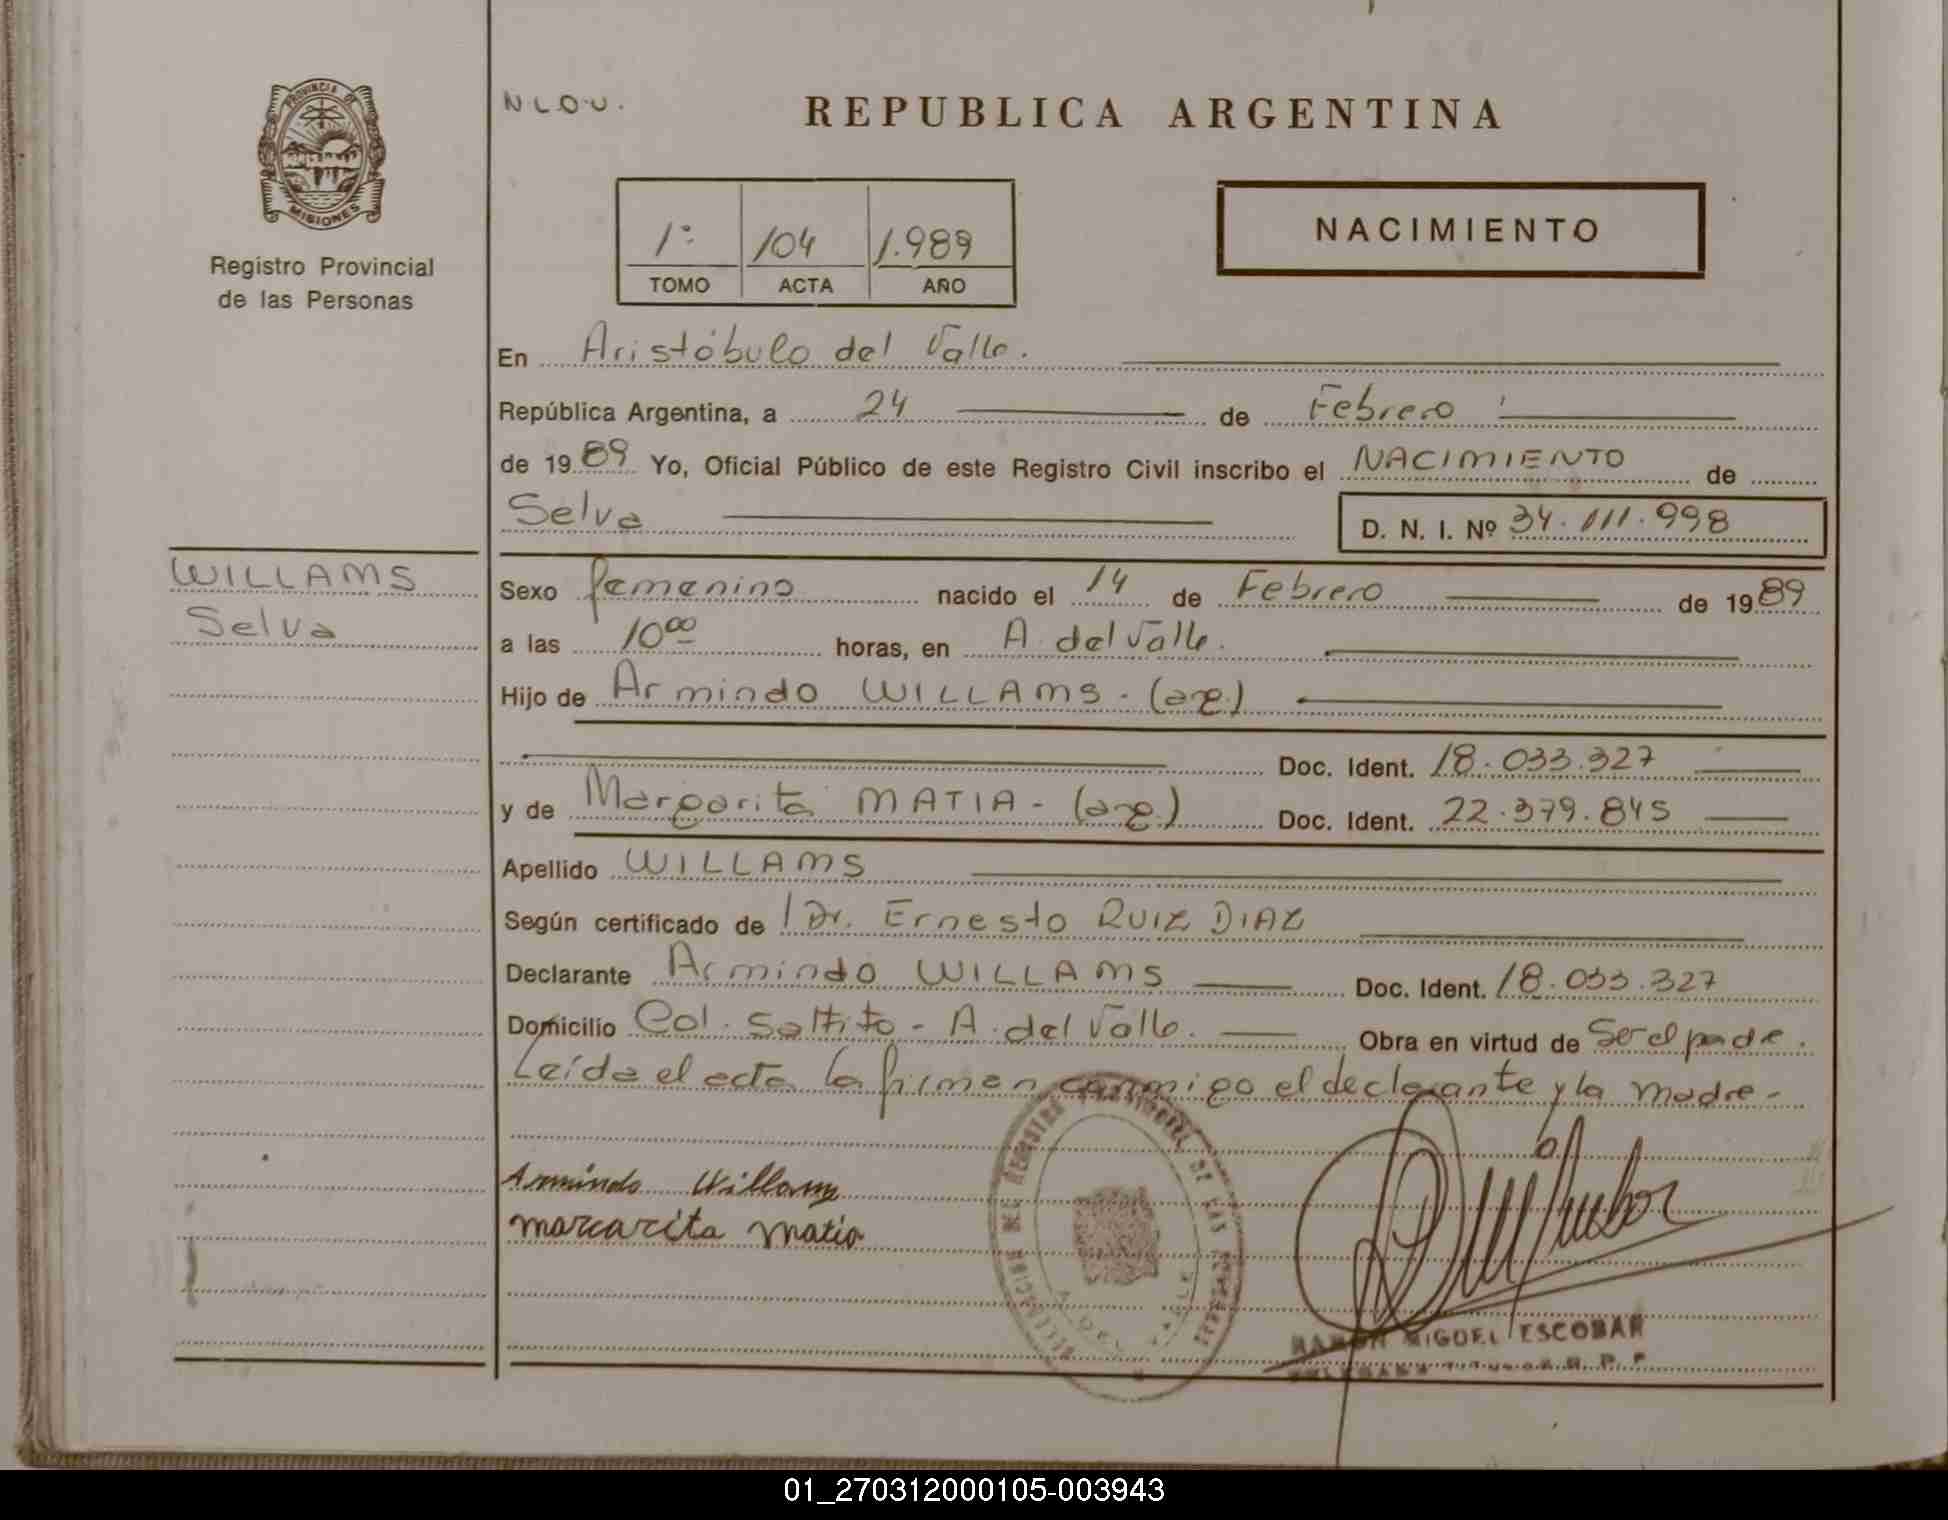 PROVINCIA DE
MISIONES
Registro Provincial
de las Personas
N L O U.
REPUBLICA ARGENTINA
1º 104 1.989
TOMO ACTA AÑO
NACIMIENTO
En Aristóbulo del Valle.
República Argentina, a 24 de Febrero
de 1989 Yo, Oficial Público de este Registro Civil inscribo el NACIMIENTO de
Selva D. N. I. Nº 34.111.998
WILLAMS
Selva
Sexo femenino nacido el 14 de Febrero de 1989
a las 10⁰⁰ horas, en A. del Valle.
Hijo de Armindo WILLAMS - (arg.)
Doc. Ident. 18.033.327
y de Margarita MATIA - (arg.) Doc. Ident. 22.379.845
Apellido WILLAMS
Según certificado de Dr. Ernesto RUIZ DIAZ
Declarante Armindo WILLAMS Doc. Ident. 18.033.327
Domicilio Col. Saltito - A. del Valle. Obra en virtud de Ser el padre.
Leída el acta la firman conmigo el declarante y la madre -
Armindo Willams
marcarita matia
RAMON MIGUEL ESCOBAR
R. P. P.
01_270312000105-003943